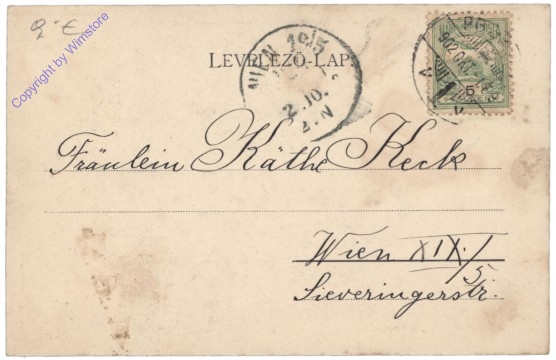 2.- €
Copyright by Wimstore
LEVELEZŐ-LAP.
WIEN 19/5
2.10.
902 OKT
5
Fräulein Käthe Keck
Wien XIX./5
Sieveringerstr.